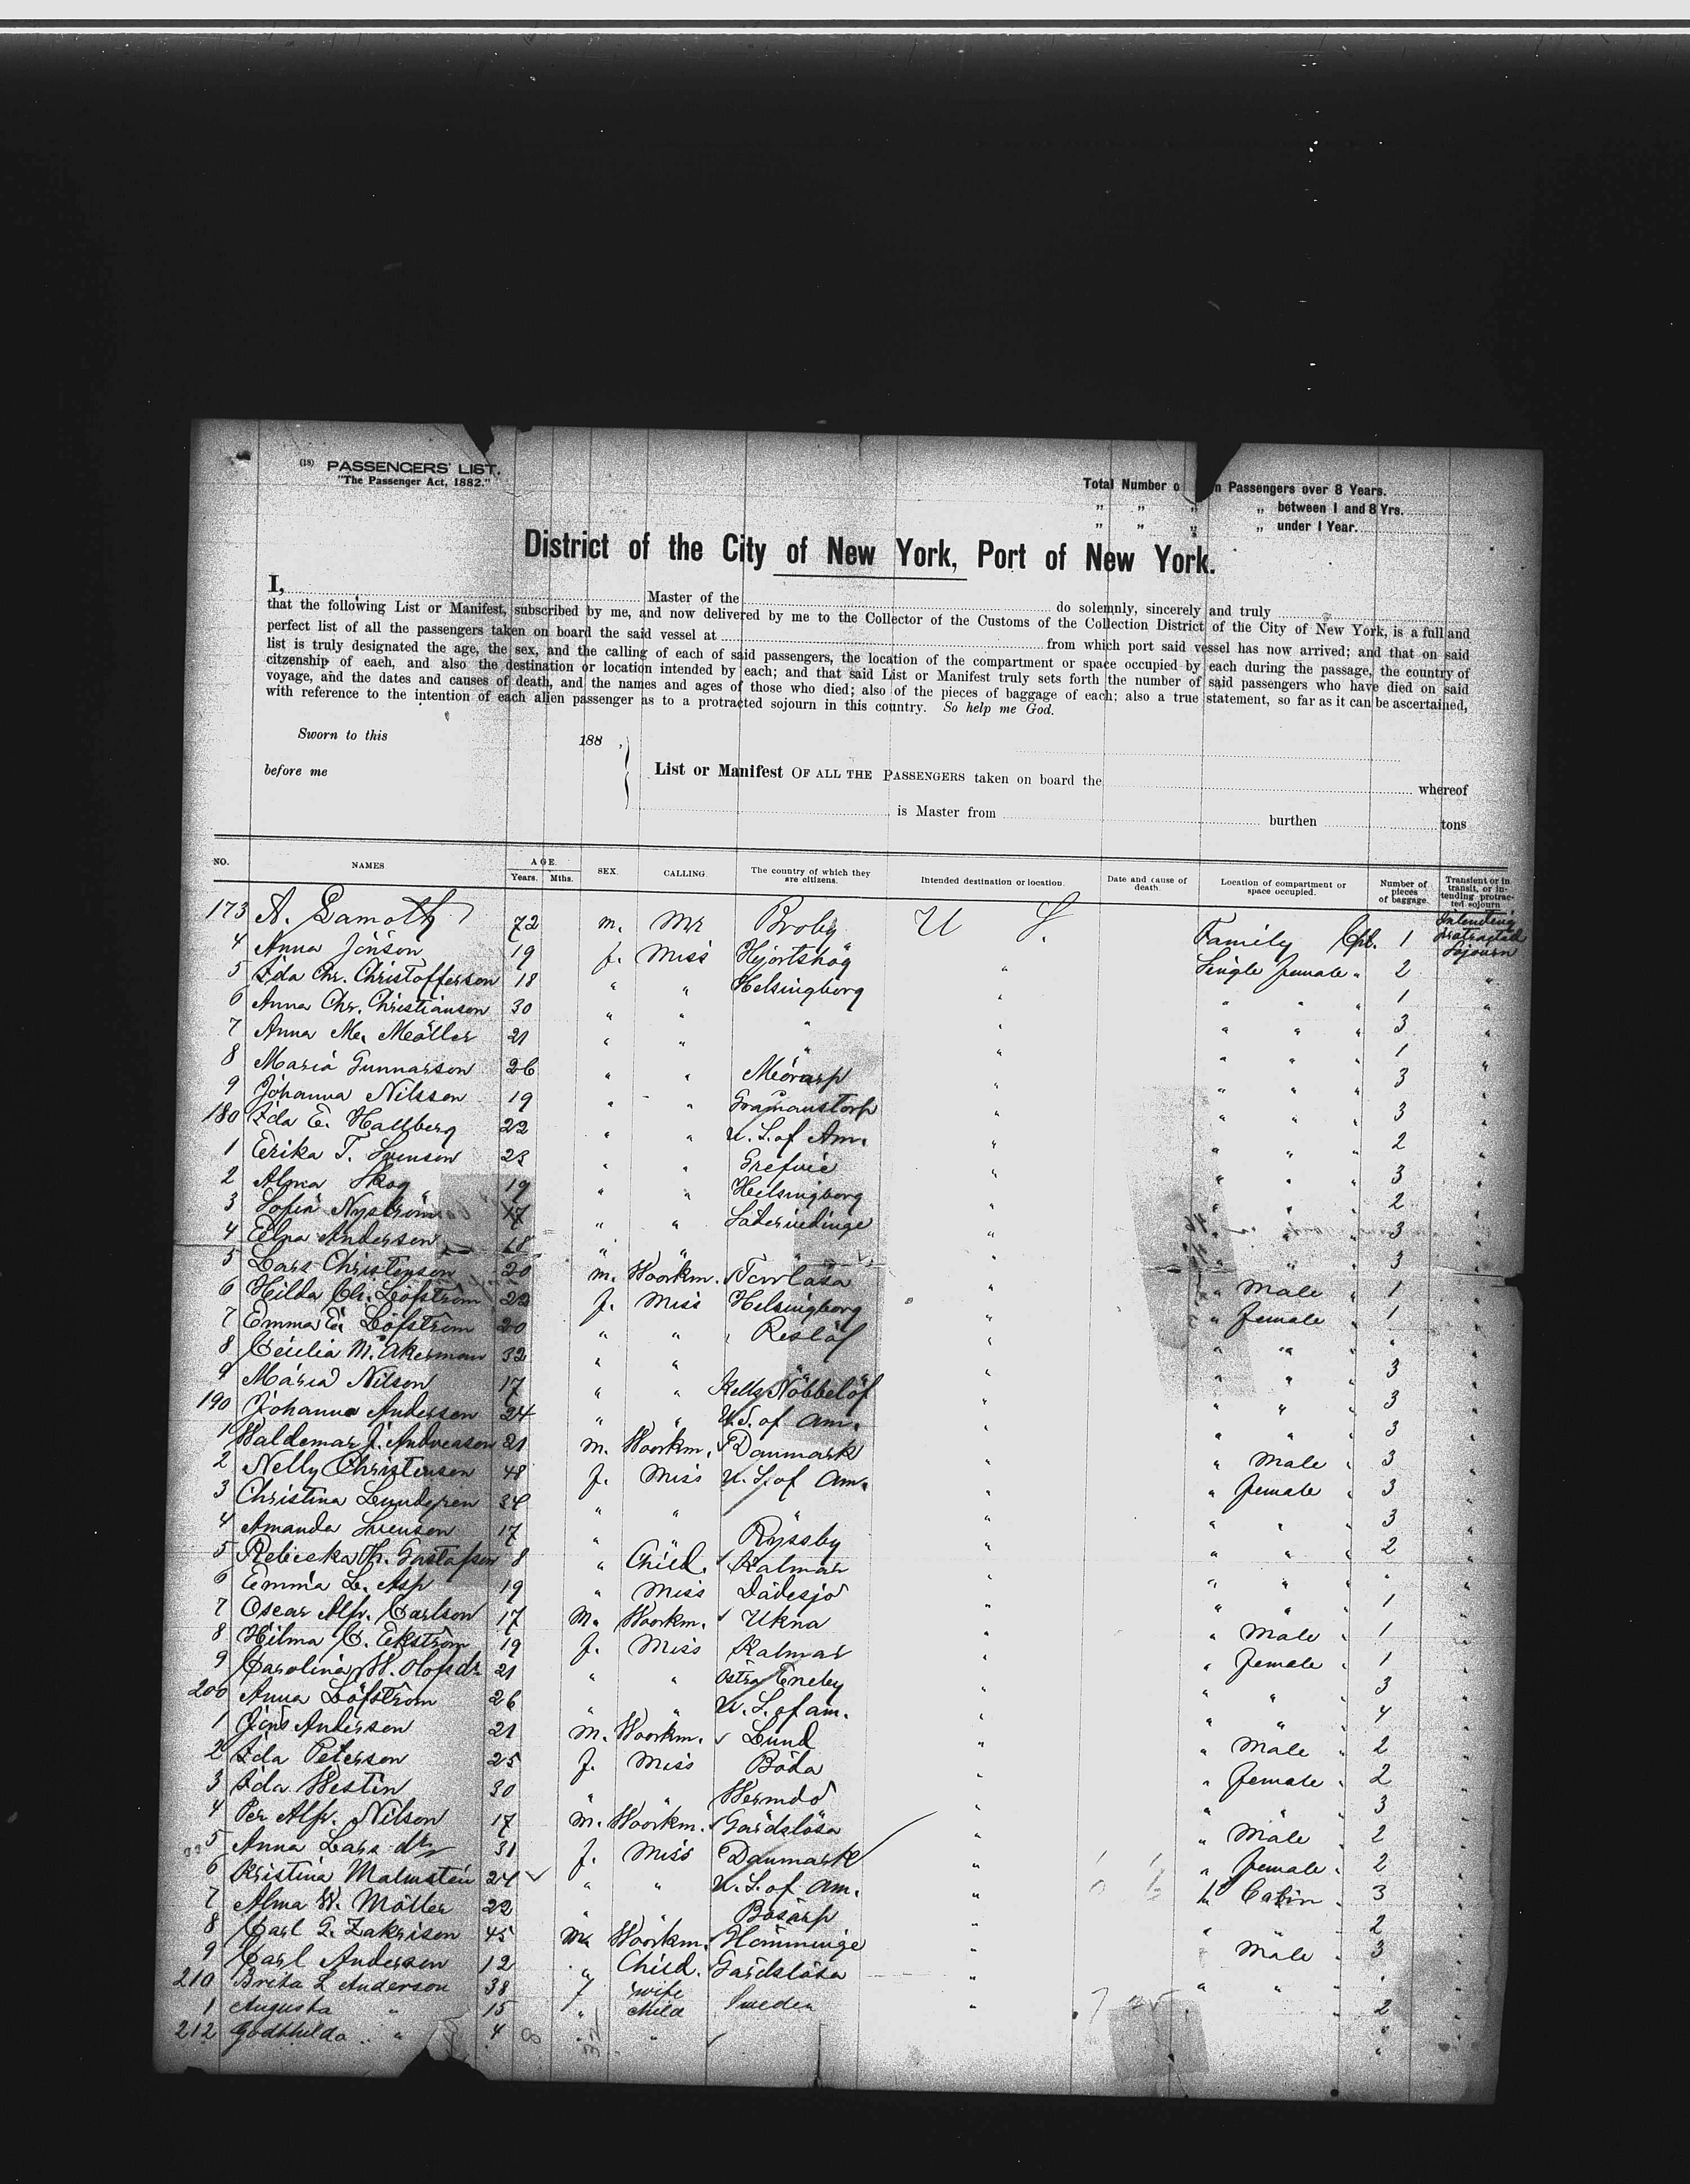 (18) PASSENGERS' LIST.
"The Passenger Act, 1882."
Total Number o n Passengers over 8 Years.
„ „ „ „ between 1 and 8 Yrs.
„ „ „ „ under 1 Year.
District of the City of New York, Port of New York.
I, Master of the do solemnly, sincerely and truly
that the following List or Manifest, subscribed by me, and now delivered by me to the Collector of the Customs of the Collection District of the City of New York, is a full and
perfect list of all the passengers taken on board the said vessel at from which port said vessel has now arrived; and that on said
list is truly designated the age, the sex, and the calling of each of said passengers, the location of the compartment or space occupied by each during the passage, the country of
citzenship of each, and also the destination or location intended by each; and that said List or Manifest truly sets forth the number of said passengers who have died on said
voyage, and the dates and causes of death, and the names and ages of those who died; also of the pieces of baggage of each; also a true statement, so far as it can be ascertained,
with reference to the intention of each alien passenger as to a protracted sojourn in this country. So help me God.
Sworn to this 188 ,
before me
List or Manifest OF ALL THE PASSENGERS taken on board the whereof
is Master from burthen tons
NO. NAMES AGE. Years. Mths. SEX. CALLING. The country of which they are citizens. Intended destination or location. Date and cause of death. Location of compartment or space occupied. Number of pieces of baggage. Transient or in transit, or intending protracted sojourn
173 A. Lamoth 72 m. Mr Broby U S. Family Cpt. 1 Intending protracted Sojourn
4 Anna Jönson 19 f. Miss Hjortshög " Single female " 2 "
5 Ida Chr. Christofferson 18 " " Helsingborg " " " " 1 "
6 Anna Chr. Christianson 30 " " " " " " " 3 "
7 Anna M. Möller 21 " " " " " " " 1 "
8 Maria Gunnarson 26 " " Mörarp " " " " 3 "
9 Johanna Nilsson 19 " " Gramanstorp " " " " 3 "
180 Ida E. Hallberg 22 " " U. S. of Am. " " " " 2 "
1 Erika T. Svenson 23 " " Grefvie " " " " 3 "
2 Alma Skog 19 " " Helsingborg " " " " 2 "
3 Sofia Nyström 17 " " " " " " 3 "
4 Elna Anderson 18 " " " " " " " 3 "
5 Lars Christenson 20 m. Woorkm. " " Male " 1 "
6 Hilda Ch. Löfström 22 f. Miss Helsingborg " " female " 1 "
7 Emma E. Löfström 20 " " Reslöf " " " " " "
8 Cecilia M. Åkerman 32 " " " " " " " 3 "
9 Maria Nilson 17 " " Nöbbelöf " " " " 3 "
190 Johanna Anderson 24 " " U.S. of Am. " " " " 3 "
1 Waldemar J. Andreason 21 m. Woorkm. Danmark " " Male " 3 "
2 Nelly Christenson 48 f. Miss U. S. of Am. " " female " 3 "
3 Christina Lundgren 34 " " " " " " " 3 "
4 Amanda Svenson 17 " " Ryssby " " " " 2 "
5 Gustafson 8 " Child. Kalmar " " " " " "
6 Emma L. Asp 19 " Miss Dädesjö " " " " 1 "
7 Oscar Alfr. Carlson 17 M. Woorkm. Ukna " " Male " 1 "
8 Hilma C. Ekström 19 f. Miss Kalmar " " female " 1 "
9 Carolina W. Olofsdr 21 " " Östra Eneby " " " 3 "
200 Anna Löfström 26 " " U. S. of am. " " " 4 "
1 Jöns Anderson 21 m. Woorkm. Lund " " Male " 2 "
2 Ida Peterson 25 f. Miss Böda " " female " 2 "
3 Ida Westin 30 " " Wermdö " " " 3 "
4 Per Alfr. Nilson 17 m. Woorkm. Gärdslösa " " Male " 2 "
5 Anna Lars dr 31 f. Miss Danmark " " female " 2 "
6 Kristina Malmsten 24 " " U. S. of am. " " Cabin " 3 "
7 Alma W. Möller 22 " " Bosarp " " " 2 "
8 Carl G. Zakrison 45 m. Woorkm. " " Male " 3 "
9 Carl Anderson 12 " Child. Gärdslösa " " " " "
210 Brita L Anderson 38 f wife Sweden " " 2 "
1 Augusta " 15 " child " "
212 Godthilda " 4 " " "